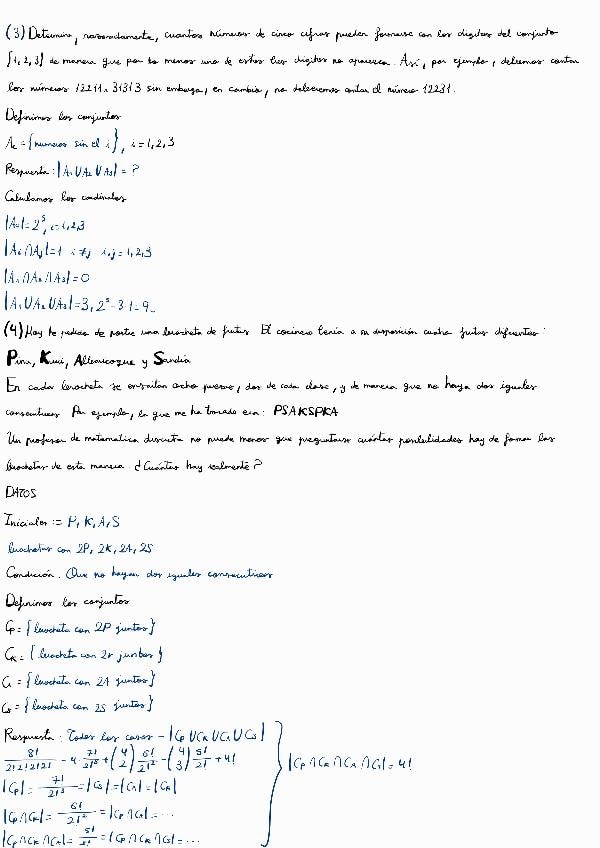 (3) Determina, razonadamente, cuantos números de cinco cifras pueden formarse con los dígitos del conjunto
{1, 2, 3} de manera que por lo menos uno de estos tres dígitos no aparezca. Así, por ejemplo, debemos contar
los números 12211 y 31313 sin embargo, en cambio, no deberemos contar el número 12231.
Definimos los conjuntos
Ai = {números sin el i}, i = 1, 2, 3
Respuesta: |A1 ∪ A2 ∪ A3| = ?
Calculamos los cardinales
|Ai| = 2^5, i = 1, 2, 3
|Ai ∩ Aj| = 1 i ≠ j i, j = 1, 2, 3
|A1 ∩ A2 ∩ A3| = 0
|A1 ∪ A2 ∪ A3| = 3, 2^5 - 3 · 1 = 9
(4) Hoy he pedido de postre una brocheta de frutas El cocinero tenía a su disposición cuatro frutas diferentes:
Pina, Kiwi, Albaricoque y Sandía
En cada brocheta se ensartan ocho piezas, dos de cada clase, y de manera que no haya dos iguales
consecutivas Por ejemplo, la que me ha tocado era: PSAKSPKA
Un profesor de matematica discreta no puede menos que preguntarse cuántas posibilidades hay de formar las
brochetas de esta manera ¿Cuántas hay realmente?
DATOS
Iniciales := P, K, A, S
brochetas con 2P, 2K, 2A, 2S
Condición: Que no hayan dos iguales consecutivos
Definimos los conjuntos
CP = {brocheta con 2P juntos}
CK = {brocheta con 2K juntos}
CA = {brocheta con 2A juntos}
CS = {brocheta con 2S juntos}
Respuesta: Todos los casos - |CP ∪ CK ∪ CA ∪ CS|
8!/(2!2!2!2!) - 4 · 7!/2!^3 + (4 2) 6!/2!^2 - (4 3) 5!/2! + 4!
|CP| = 7!/2!^3 = |CS| = |CA| = |CK|
|CP ∩ CK| = 6!/2!^2 = |CP ∩ CA| = ...
|CP ∩ CK ∩ CA| = 5!/2! = |CP ∩ CK ∩ CS| = ...
|CP ∩ CK ∩ CA ∩ CS| = 4!